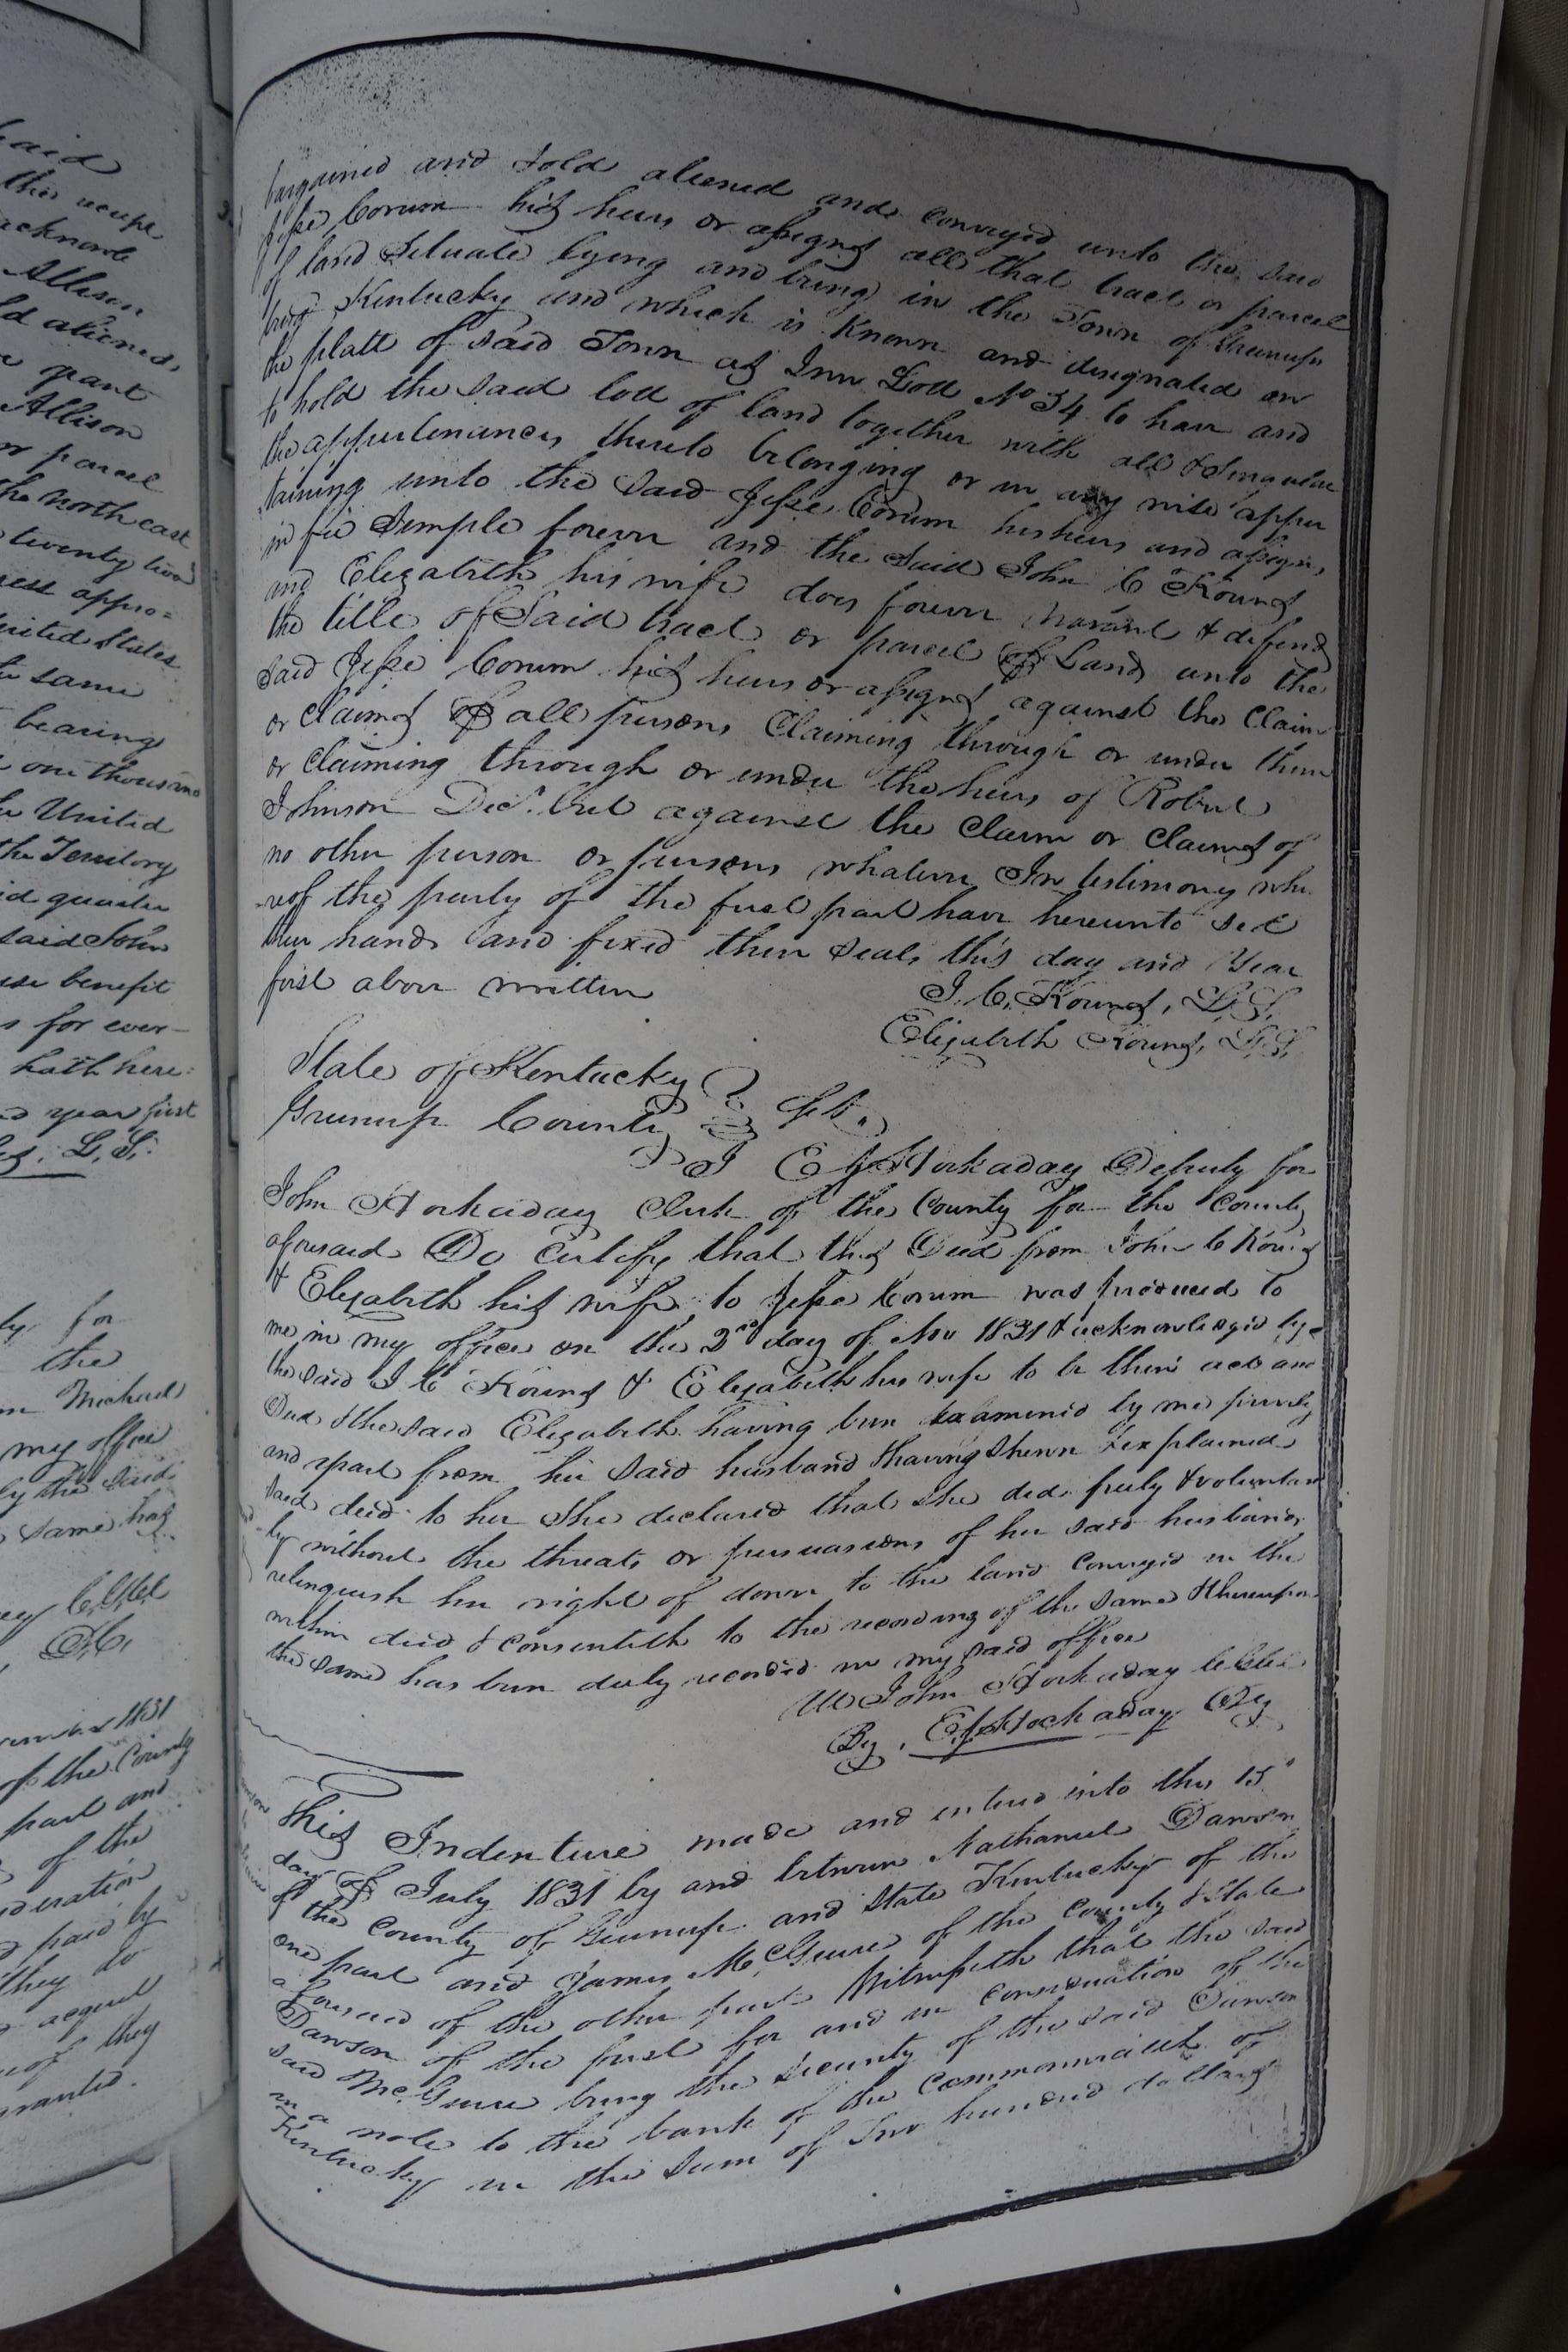 said
the
acknowle
Allison
ld aliened,
grant
Allison
or parcel
the north east
twenty two
appro=
United States
same
bearing
one thousand
United
the Territory
id quarter
said John
use benefit
s for ever—
hath here:
year first
L. S.
for
the
Michael
my office
by the Said
same has
1831
of the County
part and
of the
paid by
they do
they
bargained and sold aliened and conveyed unto the said
Jesse Corum his heirs or assigns all that tract or parcel
of land Situate lying and being in the Town of Greenup
Kentucky and which is Known and designated on
the platt of said Town as Inn Lott No 34 to have and
to hold the said lott of land together with all & Singular
the appurtenances thereto belonging or in any wise apper
taining unto the Said Jesse Corum his heirs and assigns
in fee Simple forever and the Said John C Kounz
and Elizabeth his wife does forever warrant & defend
the title of Said tract or parcel of Land unto the
said Jesse Corum his heirs or assigns against the Claim
or claims of all persons Claiming through or under them
or claiming through or under the heirs of Robert
Johnson Decd. but against the Claim or Claims of
no other person or persons whatever In testimony whe
reof the party of the first part have hereunto set
their hands and fixed their seals this day and Year
first above written
J. C. Kounz, L.S.
Elizabeth Kounz, L.S.
State of Kentucky
Greenup County
I E Hockaday Deputy for
John Hockaday Clerk of the County for the County
aforesaid Do Certify that this Deed from John C Kounz
& Elizabeth his wife to Jesse Corum was produced to
me in my office on the 2nd day of Nov 1831 & acknowledged by
the said J C Kounz & Elizabeth his wife to be their act and
Deed & the said Elizabeth having been examined by me privily
and apart from her said husband & having shewn & explained
said deed to her She declared that she did freely & volunta
ly without the threats or persuasions of her said husband
relinquish her right of dower to the land conveyed in the
within deed & consenteth to the recording of the same & thereupon
the same has been duly recorded in my said office
John Hockaday
By Hockaday Dy
This Indenture made and entered into this 15
day of July 1831 by and between Nathaniel Dawson
of the County of Greenup and State Kentucky of the
one part and James McGuire of the County & State
aforesaid of the other part Witnesseth that the said
Dawson of the first for and in consideration of the
said McGuire being the security of the said Dawson
in a note to the bank of the Commonwealth of
Kentucky in the Sum of Two hundred dollars